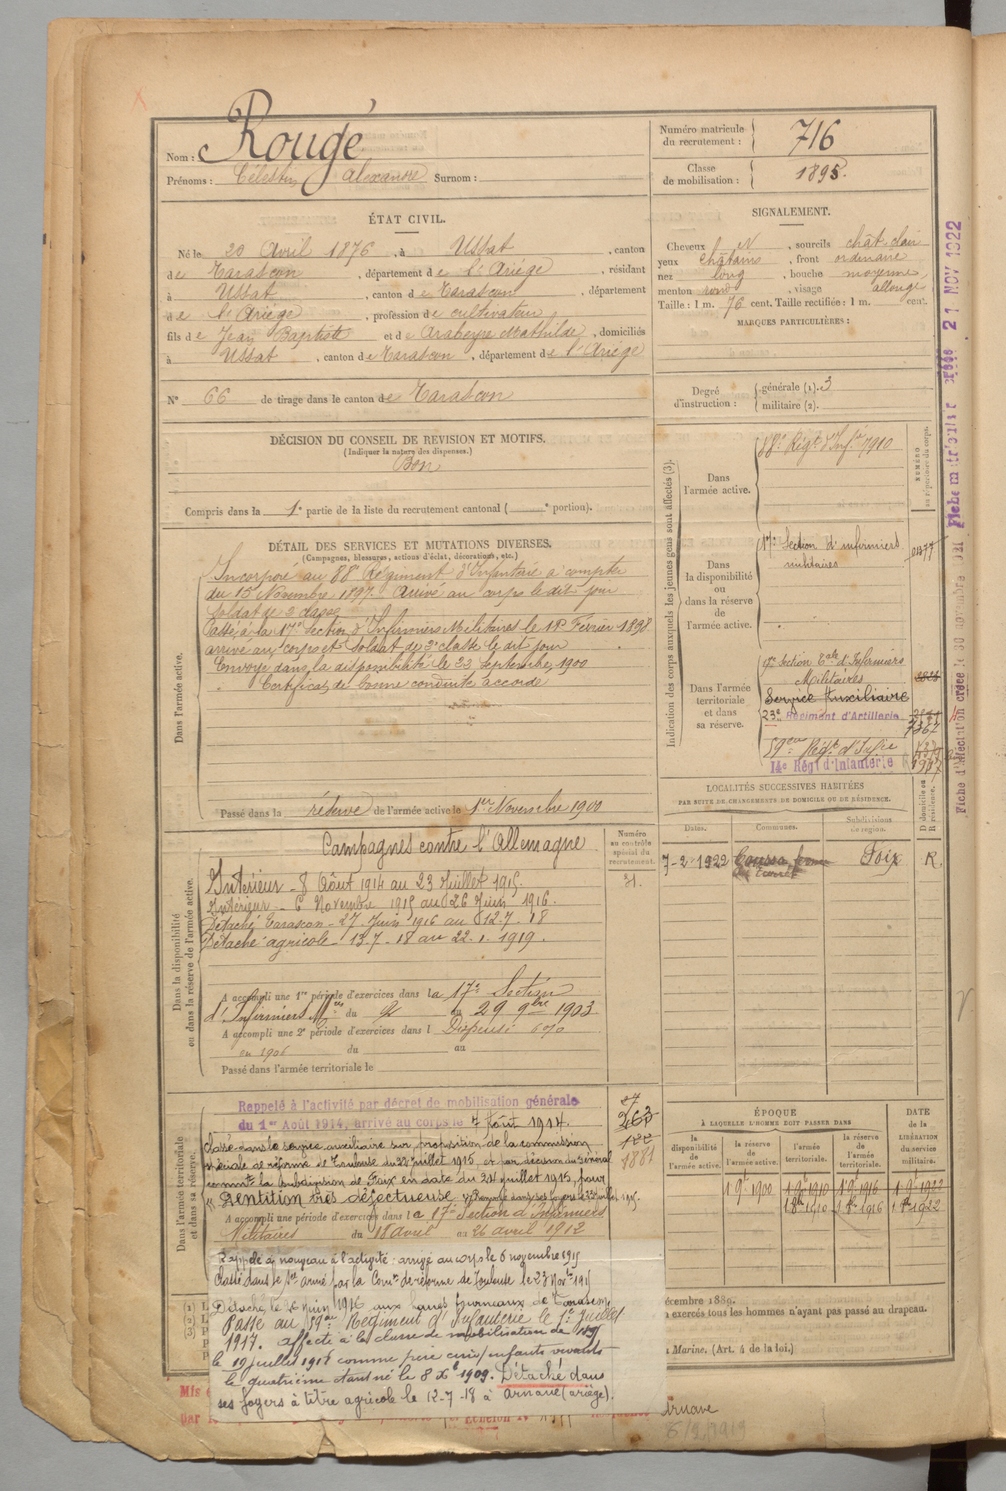 Nom : Rougé
Prénoms : Célestin Alexandre Surnom :
Numéro matricule du recrutement : 716
Classe de mobilisation : 1895.
ÉTAT CIVIL.
Né le 20 Avril 1876, à Ussat, canton
de Tarascon, département de l'Ariége, résidant
à Ussat, canton de Tarascon, département
de l'Ariége, profession de cultivateur
fils de Jean Baptiste et de Arabeyre Mathilde, domiciliés
à Ussat, canton de Tarascon, département de l'Ariége
SIGNALEMENT.
Cheveux N, sourcils chât. clair
yeux châtains, front ordinaire
nez long, bouche moyenne,
menton rond, visage allongé
Taille : 1 m. 76 cent. Taille rectifiée : 1 m. cent.
MARQUES PARTICULIÈRES :
N° 66 de tirage dans le canton de Tarascon
Degré d'instruction : générale (1). 3
militaire (2).
DÉCISION DU CONSEIL DE REVISION ET MOTIFS.
(Indiquer la nature des dispenses.)
Bon
Compris dans la 1e partie de la liste du recrutement cantonal ( e portion).
DÉTAIL DES SERVICES ET MUTATIONS DIVERSES.
(Campagnes, blessures, actions d'éclat, décorations, etc.)
Dans l'armée active.
Incorporé au 88e Régiment d'Infanterie à compter
du 15 Novembre 1897. Arrivé au corps le dit jour
Soldat de 2e classe
Passé à la 17e Section d'Infirmiers Militaires le 1er Février 1898
arrivé au corps et soldat de 2e classe le dit jour
Envoyé dans la disponibilité le 23 Septembre 1900
Certificat de bonne conduite accordé
Passé dans la réserve de l'armée active le 1er Novembre 1900
Indication des corps auxquels les jeunes gens sont affectés (3).
NUMÉRO au répertoire du corps.
Dans l'armée active.
88e Régt d'Infie 7910
Dans la disponibilité ou dans la réserve de l'armée active.
17e Section d'infirmiers
militaires
Dans l'armée territoriale et dans sa réserve.
17e Section Tale d'Infirmiers
Militaires
Service Auxiliaire
23e Régiment d'Artillerie
7367
59ème Régt d'Infie
14e Régt d'Infanterie
Fiche matricule créée 21 NOV 1922
Fiche d'affectation créée le 30 novembre 1921
LOCALITÉS SUCCESSIVES HABITÉES
PAR SUITE DE CHANGEMENTS DE DOMICILE OU DE RÉSIDENCE.
Dates.
Communes.
Subdivisions de région.
D domicile ou R résidence.
7-2-1922
Foix
R.
Dans la disponibilité ou dans la réserve de l'armée active.
Numéro au contrôle spécial du recrutement.
Campagnes contre l'Allemagne
Intérieur - 8 Août 1914 au 23 Juillet 1915.
Intérieur - 6 Novembre 1915 au 26 Juin 1916.
Détaché Tarascon - 27 Juin 1916 au 12.7.18
Détaché agricole - 13.7.18 au 22.1.1919.
A accompli une 1re période d'exercices dans la 17e Section
d'Infirmiers Mres du 2 au 29 9bre 1903
A accompli une 2e période d'exercices dans l Dispensé 6%
en 1906 du au
Passé dans l'armée territoriale le
Dans l'armée territoriale et dans sa réserve.
Rappelé à l'activité par décret de mobilisation générale
du 1er Août 1914, arrivé au corps le 7 Août 1914.
Classé dans le service auxiliaire sur proposition de la commission
spéciale de réforme de Toulouse du 22 juillet 1915, et par décision du Général
commt la subdivision de Foix en date du 24 juillet 1915, pour
"Dentition très défectueuse"
A accompli une période d'exercices dans la 17e Section d'Infirmiers
Militaires du 18 avril au 26 avril 1912
263
1881
Rappelé à nouveau à l'activité : arrivé au corps le 6 novembre 1915
Classé dans le Sce armé par la Comon de réforme de Toulouse le 23 Nov. 1915
Détaché le 26 Juin 1916 aux hauts fourneaux de Tarascon
Passé au 59ème Régiment d'Infanterie le 1er Juillet
1917. affecté à la classe de mobilisation de
le 19 juillet 1917 comme père cinq enfants vivants
le quatrième étant né le 8 Xbre 1909. Détaché dans
ses foyers à titre agricole le 12-7-18 à Arnave (ariège).
ÉPOQUE
À LAQUELLE L'HOMME DOIT PASSER DANS
la disponibilité de l'armée active.
la réserve de l'armée active.
l'armée territoriale.
la réserve de l'armée territoriale.
DATE DE LA LIBÉRATION du service militaire.
1 9bre 1900
1 9bre 1910
1 9bre 1916
1 9bre 1922
1 8bre 1910
1 8bre 1916
1 8bre 1922
écembre 1889.
n exercés tous les hommes n'ayant pas passé au drapeau.
a Marine. (Art. 4 de la loi.)
Arnave